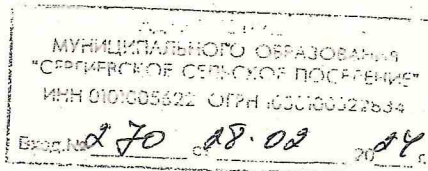 МУНИЦИПАЛЬНОГО ОБРАЗОВАНИЯ
"СЕРГИЕВСКОЕ СЕЛЬСКОЕ ПОСЕЛЕНИЕ"
ИНН 0101005622 ОГРН
Вход.№ 270 от 28.02 2024 г.